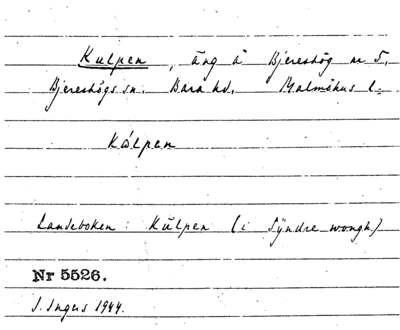 Kulpen, äng å Bjereshög nr 5,
Bjereshögs sn. Bara hd. Malmöhus l.
Kólpen
Landeboken: Kŭlpen (i Sÿndre wongh)
Nr 5526.
S. Ingers 1944.